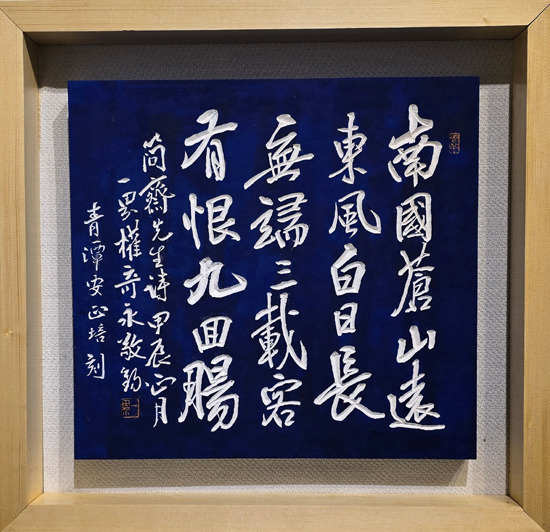 南國蒼山遠
東風白日長
無端三載客
有恨九回腸
簡齋先生詩 甲辰正月
一思 權奇永 敬錄
青潭 安正培 刻